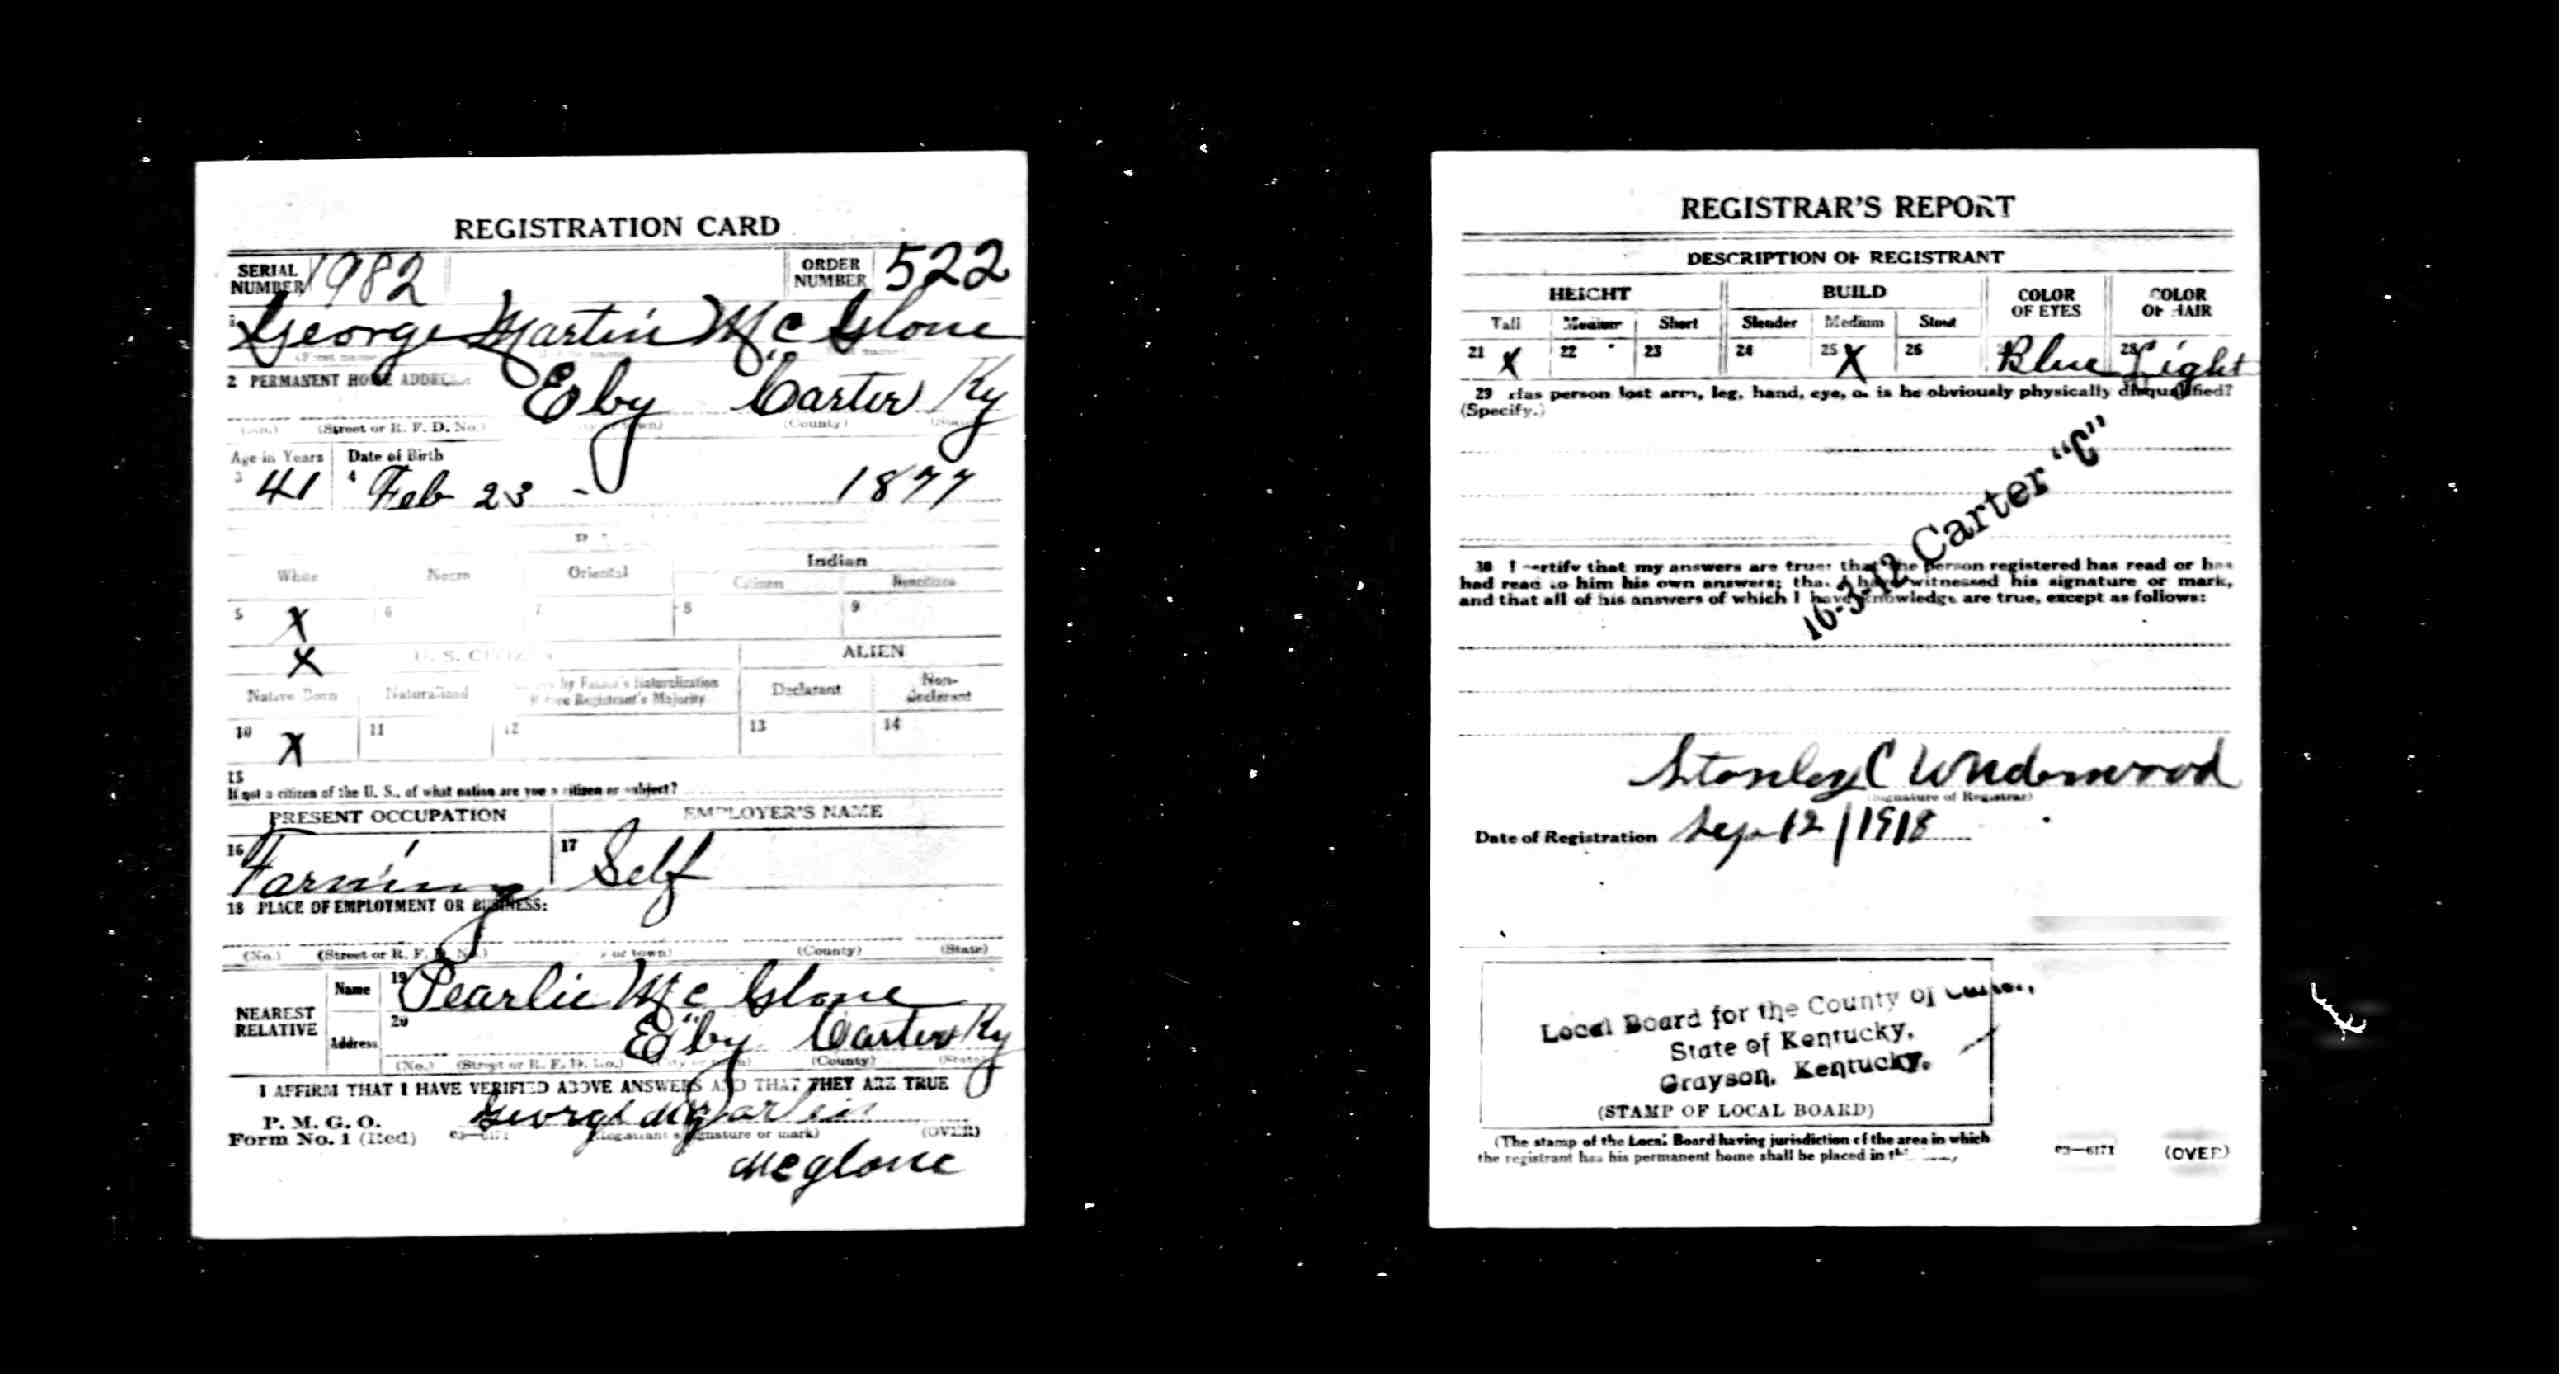 REGISTRATION CARD
SERIAL NUMBER 1982 ORDER NUMBER 522
1 George Martin Mc Glone
(First name)
2 PERMANENT HOME ADDRESS Eby Carter Ky
(Street or R. F. D. No.) (County)
Age in Years Date of Birth
3 41 4 Feb 23 - 1877
Indian
White Oriental Citizen
5 X 6 7 8 9
X U. S. CITIZEN ALIEN
Native Born Naturalized by Father's Naturalization Declarant Non-declarant
Registrant's Majority
10 X 11 12 13 14
15
If not a citizen of the U. S., of what nation are you a citizen or subject?
PRESENT OCCUPATION EMPLOYER'S NAME
16 Farming 17 Self
18 PLACE OF EMPLOYMENT OR BUSINESS:
(No.) (Street or R. F. D. No.) or town) (County) (State)
NEAREST RELATIVE
Name 19 Pearlie Mc Glone
Address 20 Eby Carter Ky
(No.) (Street or R. F. D. No.) (County) (State)
I AFFIRM THAT I HAVE VERIFIED ABOVE ANSWERS AND THAT THEY ARE TRUE
P. M. G. O.
Form No. 1 (Red) George Martin
(Registrant's signature or mark) (OVER)
Mcglone
REGISTRAR'S REPORT
DESCRIPTION OF REGISTRANT
HEIGHT BUILD COLOR OF EYES COLOR OF HAIR
Tall Medium Short Slender Medium Stout
21 X 22 23 24 25 X 26 Blue 28 Light
29 Has person lost arm, leg, hand, eye, or is he obviously physically disqualified?
(Specify.)
16-3-12 Carter "C"
30 I certify that my answers are true; that the person registered has read or has
had read to him his own answers; that I have witnessed his signature or mark,
and that all of his answers of which I have knowledge are true, except as follows:
Stanley C Underwood
(Signature of Registrar)
Date of Registration Sep 12 / 1918
Local Board for the County of Carter,
State of Kentucky,
Grayson, Kentucky.
(STAMP OF LOCAL BOARD)
(The stamp of the Local Board having jurisdiction of the area in which
the registrant has his permanent home shall be placed in
03-6171 (OVER)